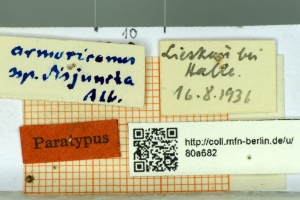 10
armoricanus
ssp. disjuncta
Alb.
Lieskau bei
Halle.
16.8.1936
Paratypus
http://coll.mfn-berlin.de/u/
80a682